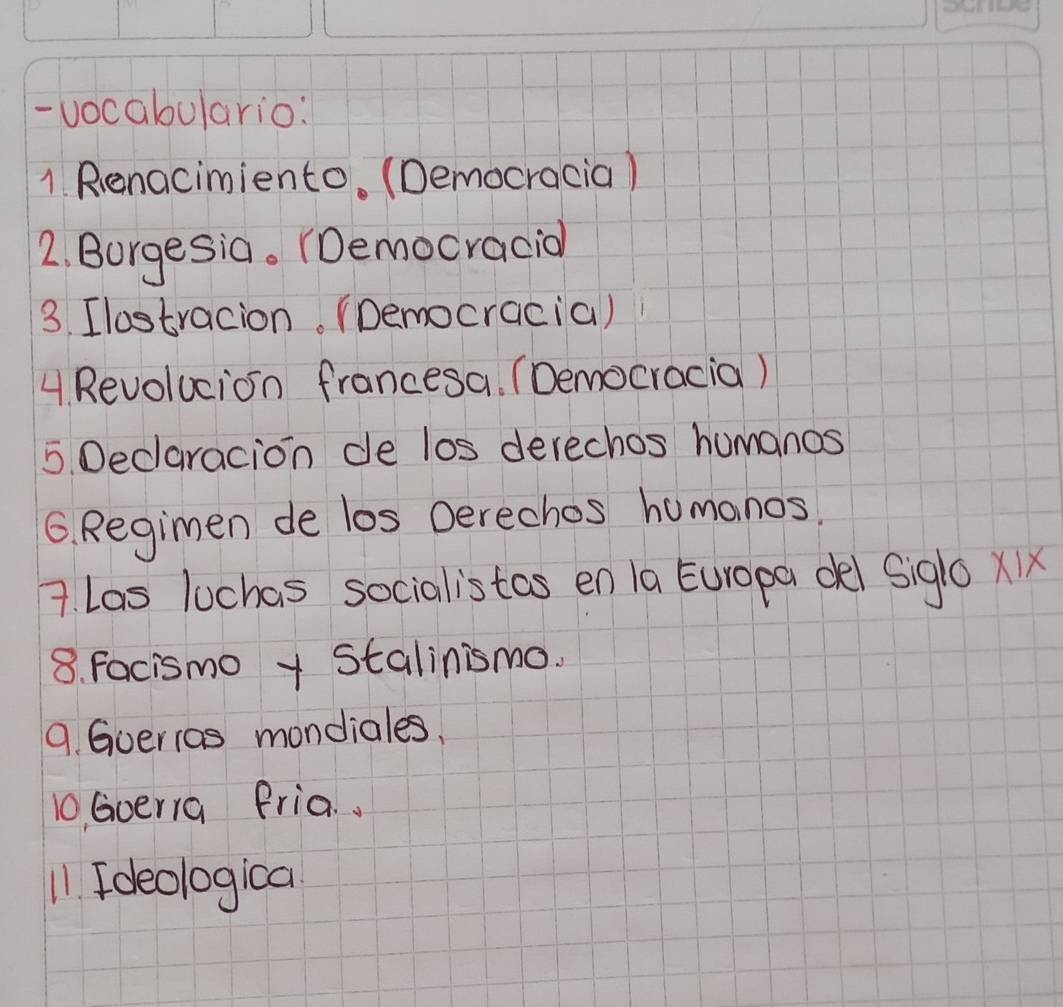 Scribe
-vocabulario:
1. Renacimiento. (Democracia)
2. Burgesia. (Democracia
3. Ilustracion. (Democracia)
4. Revolución francesa. (Democracia)
5. Declaración de los derechos humanos
6. Regimen de los Derechos humanos.
7. Las luchas socialistas en la Europa del Siglo XIX
8. Facismo y Stalinismo.
9. Guerras mundiales.
10. Guerra fria.
11. Ideologica.